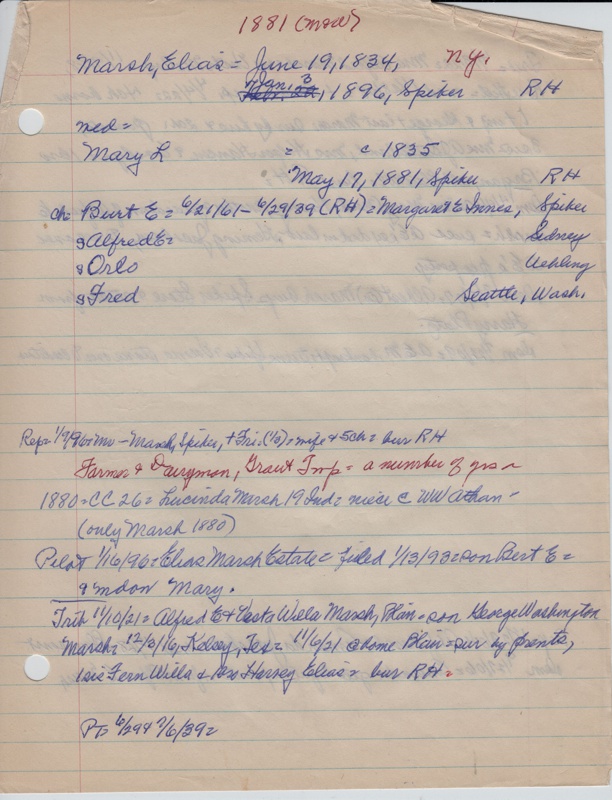 1881 (mow)
Marsh, Elias = June 19, 1834, N.Y.
Jan. 3, 1896, Spiker RH
med =
Mary L = c 1835
May 17, 1881, Spiker RH
ch = Burt E = 6/21/61 - 6/29/39 (RH) = Margaret E Innes, Spiker
s Alfred E = Sidney
s Orlo Uehling
s Fred Seattle, Wash.
Rep = 1/9/96 = Mr - Marsh, Spiker, + Fri. (1/3) = wife + 5ch = bur RH
Farmer & Dairyman, Grant Twp = a number of yrs
1880 = CC 26 = Lucinda Marsh 19 Ind = niece c WW
(only Marsh 1880)
Pilot 1/16/96 = Elias Marsh Estate = filed 1/13/93 = son Burt E =
Mary.
Trib 11/10/21 = Alfred E + Vesta Willa Marsh, Plain = son George Washington
Marsh = 12/3/16, Kelsey, Tex = 11/6/21 @ home Plain = sur by prents,
sis Fern Willa & bro Harvey Elias = bur RH =
PT = 6/29 & 7/6/39 =